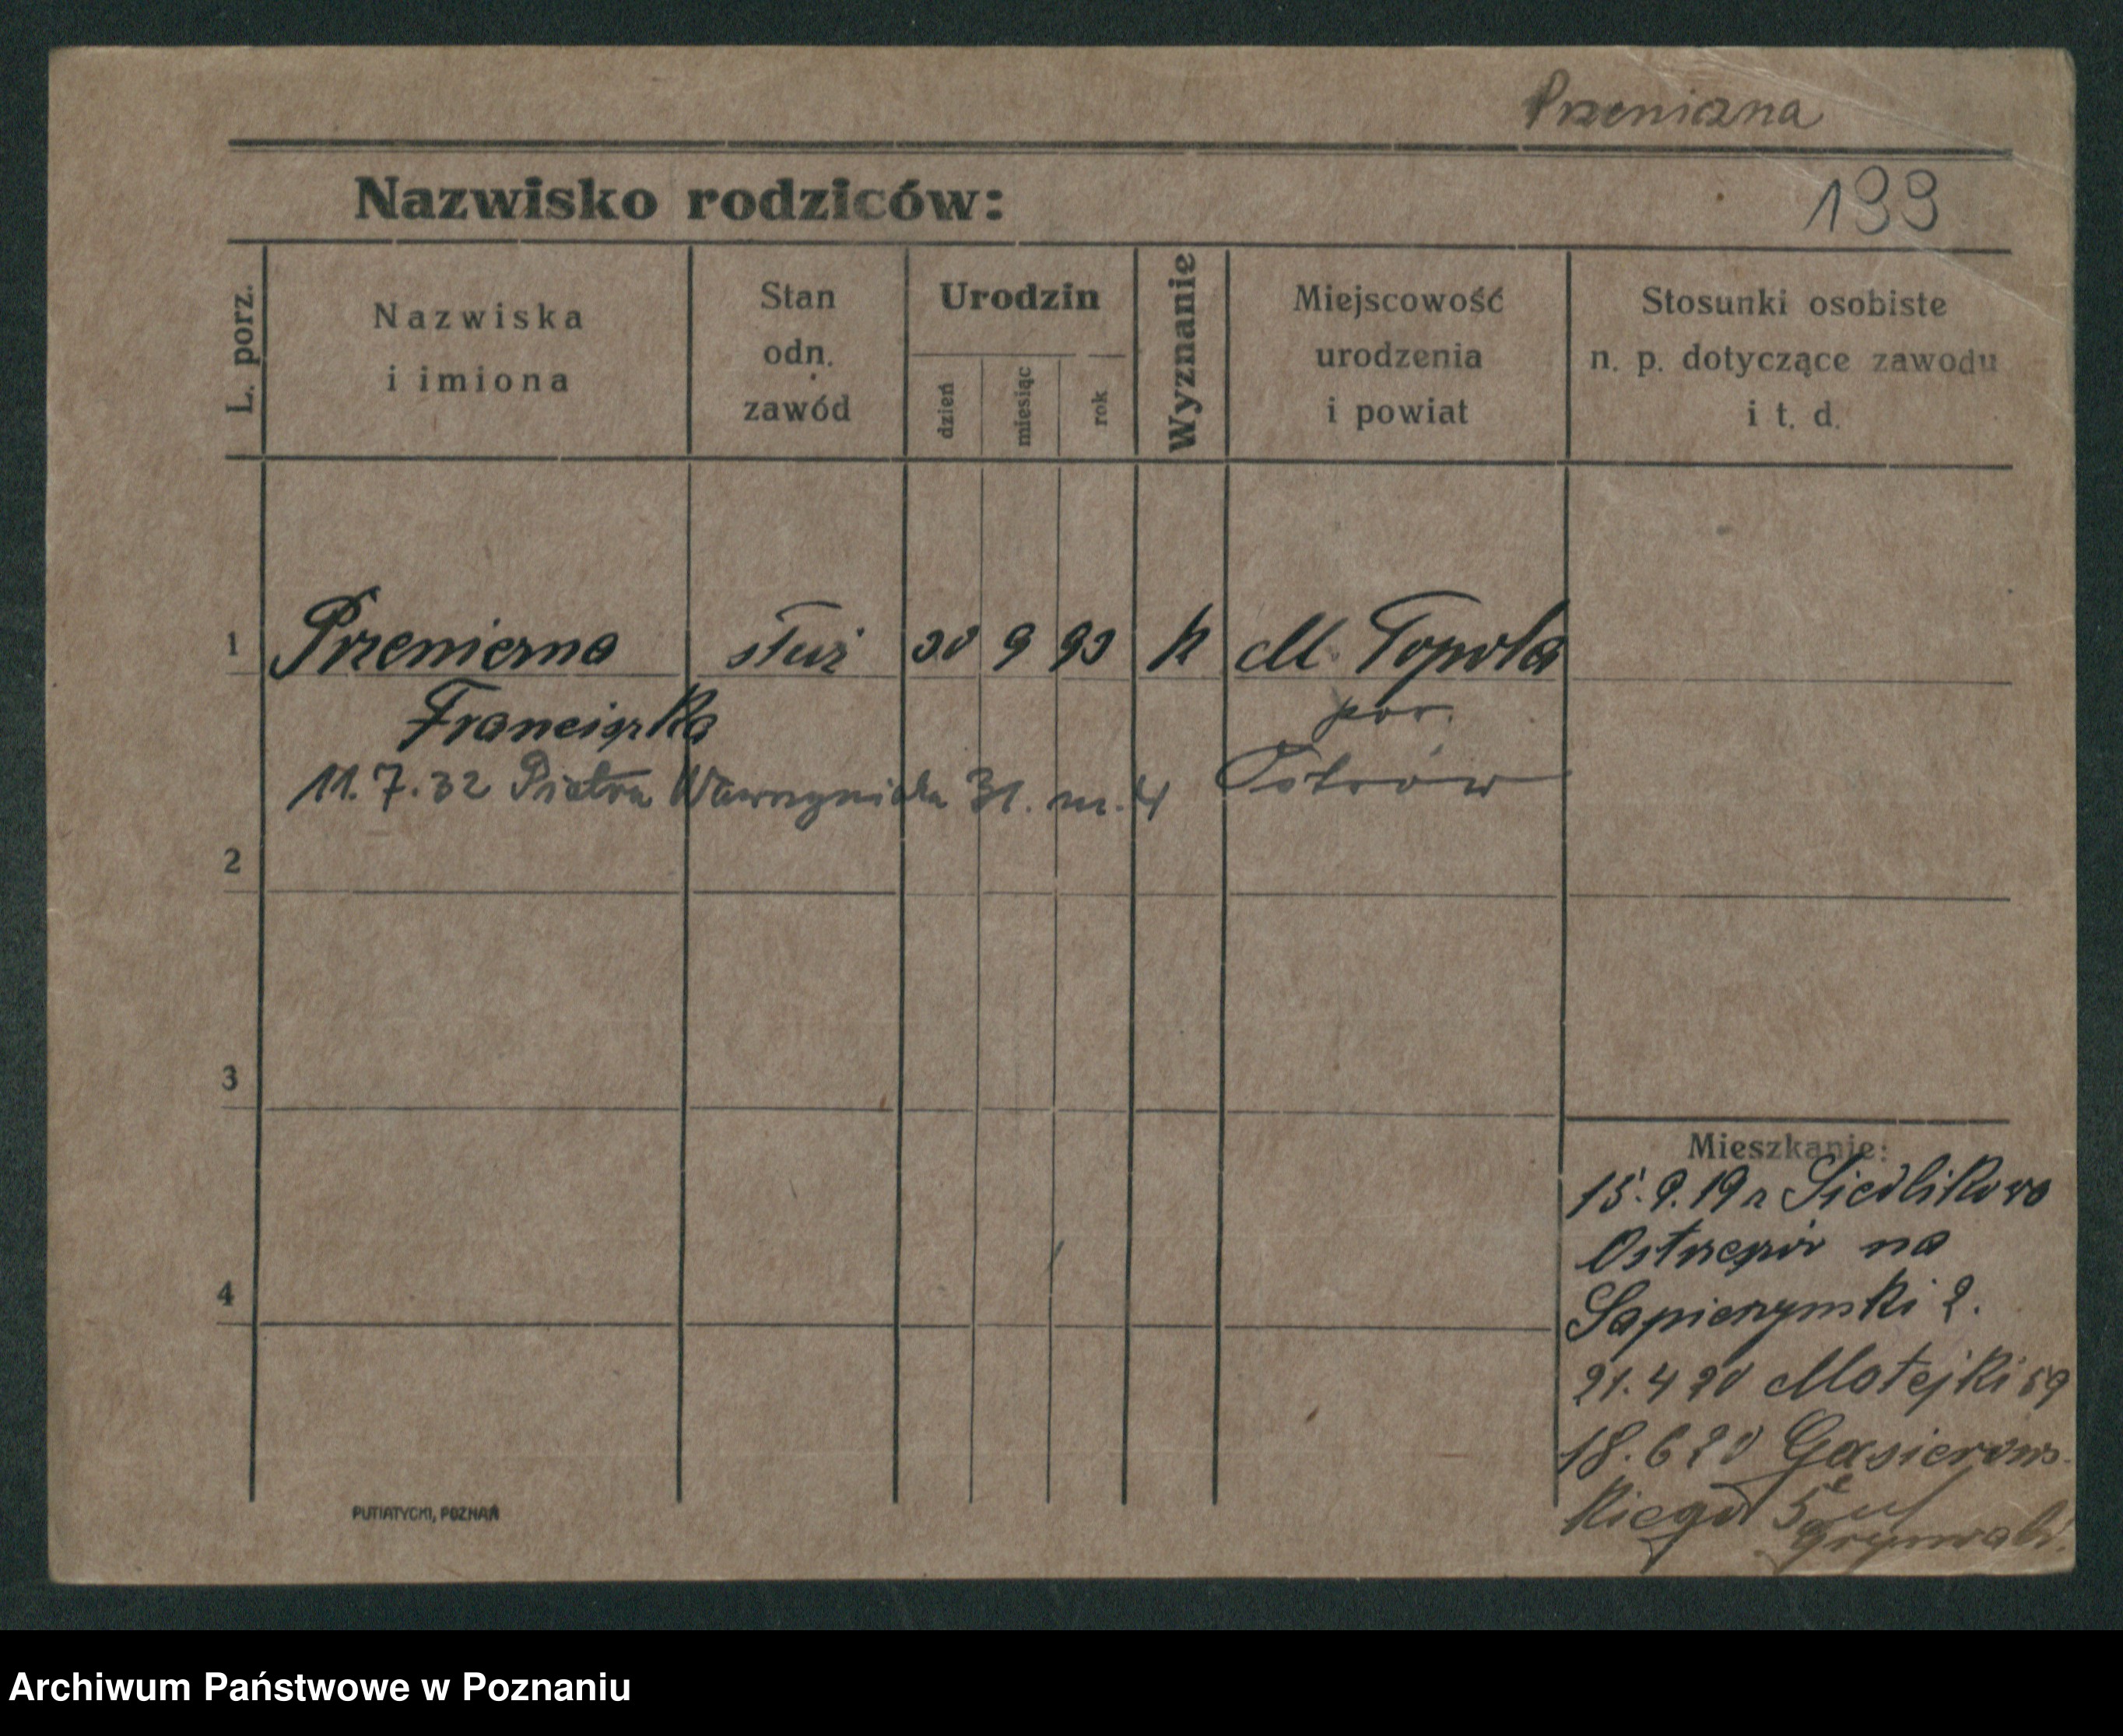 Przeniczna
Nazwisko rodziców:
199
L. porz.
Nazwiska
i imiona
Stan
odn.
zawód
Urodzin
dzień
miesiąc
rok
Wyznanie
Miejscowość
urodzenia
i powiat
Stosunki osobiste
n. p. dotyczące zawodu
i t. d.
1
służ
9
k
M. Topola
Franciszka
pow.
11.7.32 Piotra Wawrzyniaka 31. m. 4
Ostrów
2
3
4
Mieszkanie:
15.9.19 z Siedlikowo
na
Sapieżynski 2.
21.4 20 Matejki 59
18.6 20 Gąsiorows-
kiego 5
PUTIATYCKI, POZNAŃ
Archiwum Państwowe w Poznaniu